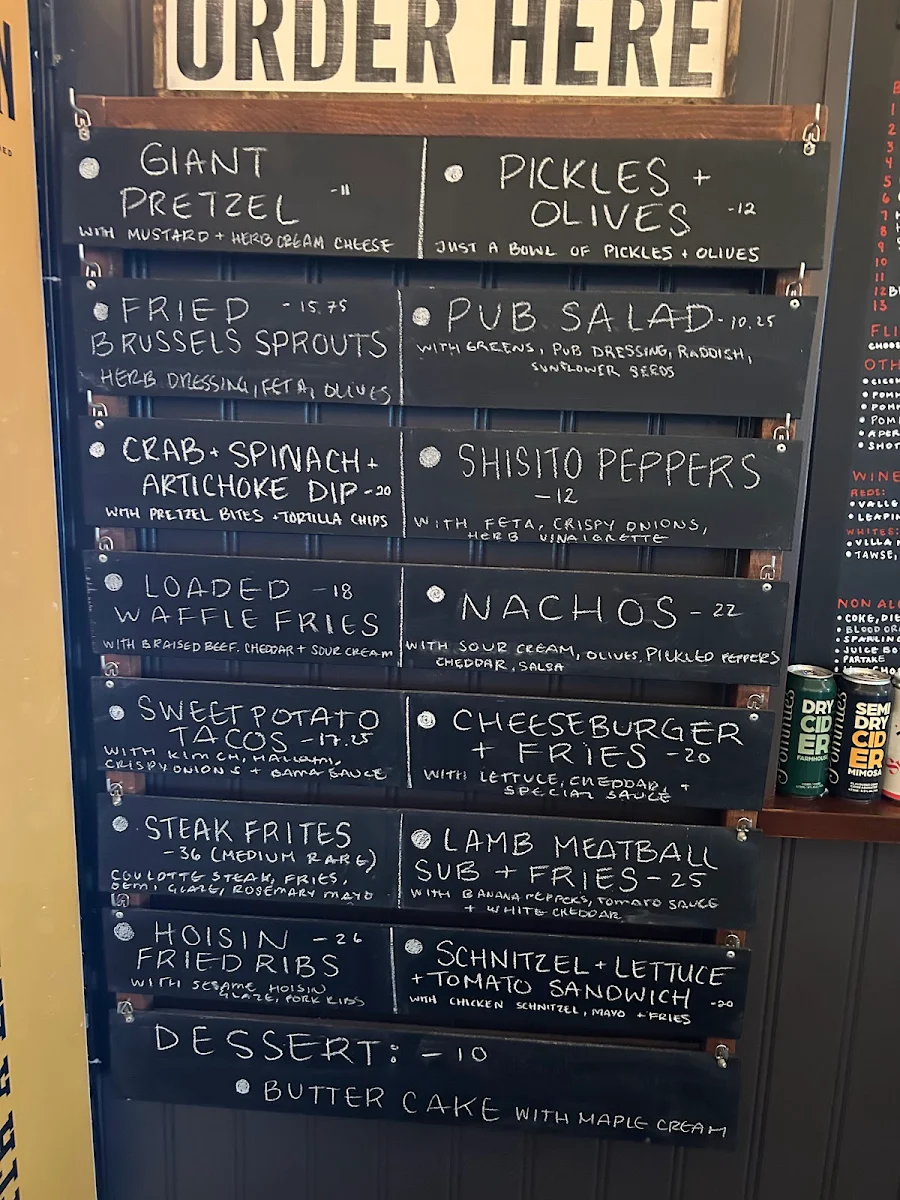 ORDER HERE
GIANT
PRETZEL -11
WITH MUSTARD + HERB CREAM CHEESE
PICKLES +
OLIVES -12
JUST A BOWL OF PICKLES + OLIVES
FRIED -15.75
BRUSSELS SPROUTS
HERB DRESSING, FETA, OLIVES
PUB SALAD -10.25
WITH GREENS, PUB DRESSING, RADDISH,
SUNFLOWER SEEDS
CRAB + SPINACH +
ARTICHOKE DIP -20
WITH PRETZEL BITES + TORTILLA CHIPS
SHISITO PEPPERS
-12
WITH FETA, CRISPY ONIONS,
HERB VINAIGRETTE
LOADED -18
WAFFLE FRIES
WITH BRAISED BEEF, CHEDDAR + SOUR CREAM
NACHOS - 22
WITH SOUR CREAM, OLIVES, PICKLED PEPPERS
CHEDDAR, SALSA
SWEET POTATO
TACOS -17.25
WITH KIMCHI,
CRISPY ONIONS + BAMA SAUCE
CHEESEBURGER
+ FRIES -20
WITH LETTUCE, CHEDDAR, +
SPECIAL SAUCE
STEAK FRITES
-36 (MEDIUM RARE)
COULOTTE STEAK, FRIES,
DEMI GLAZE, ROSEMARY MAYO
LAMB MEATBALL
SUB + FRIES - 25
WITH BANANA PEPPERS, TOMATO SAUCE
+ WHITE CHEDDAR
HOISIN -26
FRIED RIBS
WITH SESAME HOISIN
GLAZE, PORK RIBS
SCHNITZEL + LETTUCE
+ TOMATO SANDWICH -20
WITH CHICKEN SCHNITZEL, MAYO + FRIES
DESSERT: - 10
BUTTER CAKE WITH MAPLE CREAM
1
2
3
4
5
6
7
8
9
10
11
12
13
WINE
REDS:
WHITES:
TAWSE,
PARTAKE
DRY
CID
ER
FARMHOUSE
SEMI
DRY
CID
ER
MIMOSA